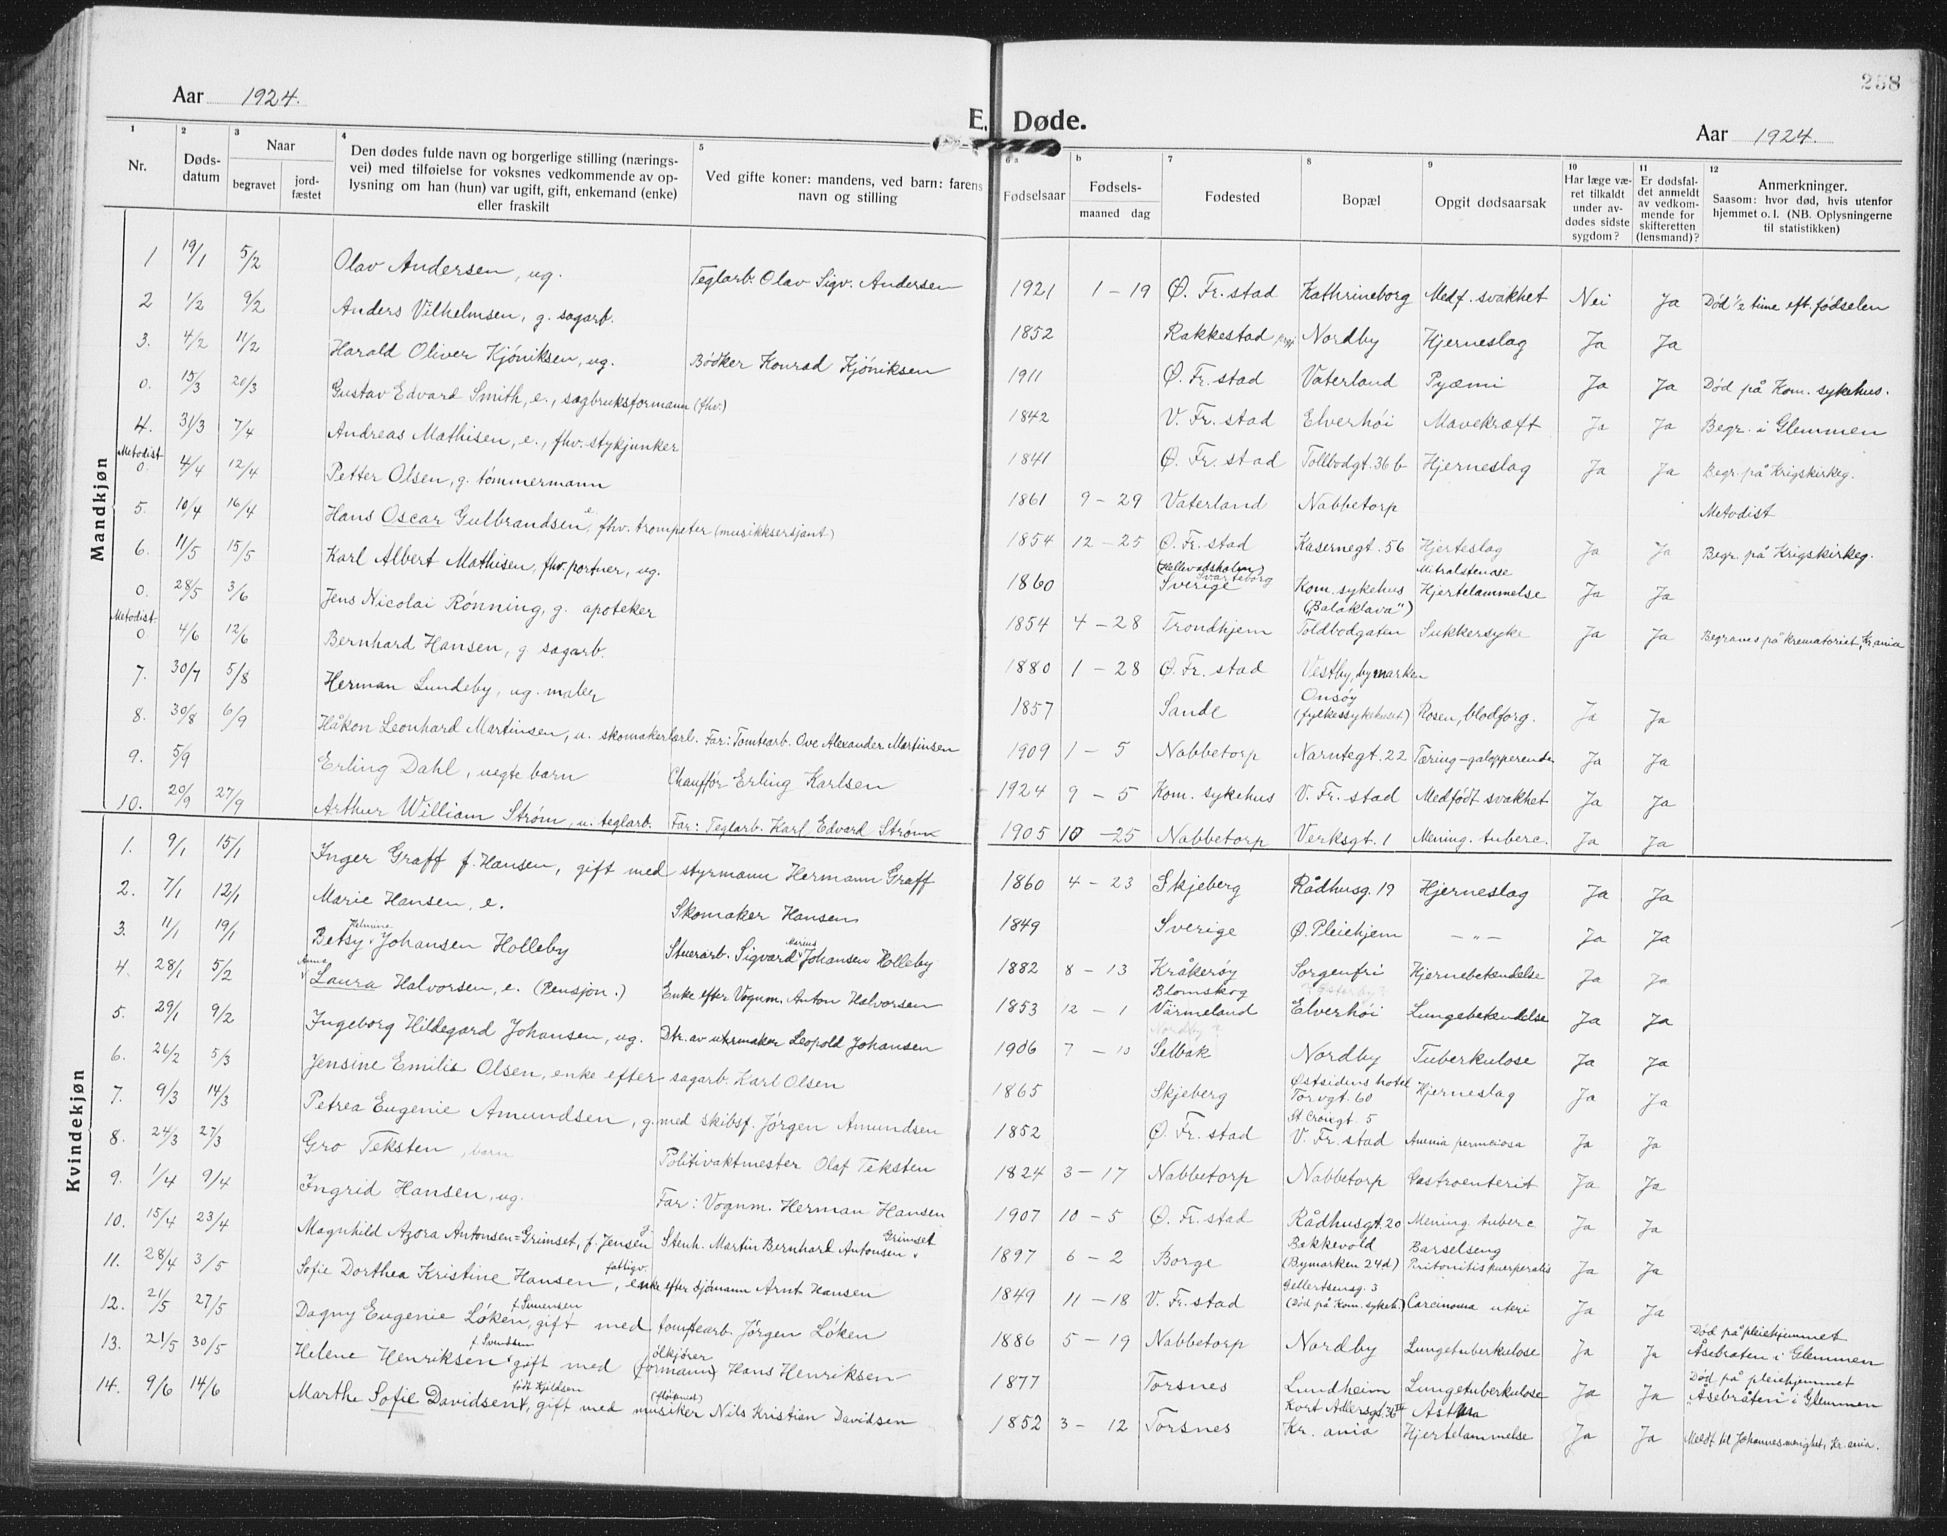 258
Aar 1924.
E. Døde.
Aar 1924.
1 2 3 4 5 6 a b 7 8 9 10 11 12
Nr.
Døds-
datum
Naar
begravet
jord-
fæstet
Den dødes fulde navn og borgerlige stilling (nærings-
vei) med tilføielse for voksnes vedkommende av op-
lysning om han (hun) var ugift, gift, enkemand (enke)
eller fraskilt
Ved gifte koner: mandens, ved barn: farens
navn og stilling
Fødselsaar
Fødsels-
maaned dag
Fødested
Bopæl
Opgit dødsaarsak
Har læge væ-
ret tilkaldt
under av-
dødes sidste
sygdom?
Er dødsfal-
det anmeldt
av vedkom-
mende for
skifteretten
(lensmand)?
Anmerkninger.
Saasom: hvor død, hvis utenfor
hjemmet o. l. (NB. Oplysningerne
til statistikken)
Mandkjøn
1 19/1 5/2 Olav Andersen, ug. Teglarb. Olav Sigv. Andersen 1921 1 - 19 Ø. Fr. stad Kathrineborg Medf. svakhet Nei Ja Død 1/2 time eft. fødselen
2 1/2 9/2 Anders Vilhelmsen, g. sagarb. 1852 Rakkestad Nordby Hjerneslag Ja Ja
3. 4/2 11/2 Harald Oliver Kjøniksen, ug. Bødker Konrad Kjøniksen 1911 Ø. Fr. stad Vaterland Pyæmi Ja Ja Død på Kom. sykehus.
0. 15/3 20/3 Gustav Edvard Smith, e., sagbruksformann (fhv.) 1842 V. Fr. stad Elverhøi Mavekræft Ja Ja Begr. i Glemmen
4. 31/3 7/4 Andreas Mathisen, e., fhv. stykjunker 1841 Ø. Fr. stad Tollbodgt. 36 b Hjerneslag Ja Ja Begr. på Krigskirkeg.
Metodist
0. 4/4 12/4 Petter Olsen, g. tømmermann 1861 9 - 29 Vaterland Nabbetorp Metodist
5. 10/4 16/4 Hans Oscar Gulbrandsen, e. fhv. trompeter (musikksersjant) 1854 12 - 25 Ø. Fr. stad Kasernegt. 56 Hjerteslag Ja Ja Begr. på Krigskirkeg.
6. 11/5 15/5 Karl Albert Mathisen, fhv. portner, ug. 1860 (Hellevadsholm) Svarteborg Sverige Kom. sykehus ("Balaklava") Mitralstenose Hjertelammelse Ja Ja
0. 28/5 3/6 Jens Nicolai Rønning, g. apoteker 1854 4 - 28 Trondhjem Toldbodgaten Sukkersyke Ja Ja Begraves på krematoriet, Kr.ania
Metodist
0 4/6 12/6 Bernhard Hansen, g. sagarb. 1880 1 - 28 Ø. Fr. stad Vestby, bymarken
7. 30/7 5/8 Herman Lundeby, ug. maler 1857 Sande Onsøy (fylkessykehuset) Rosen, blodforg. Ja Ja
8. 30/8 6/9 Håkon Leonhard Martinsen, u. skomakerlærl. Far: Tomtearb. Ove Alexander Martinsen 1909 1 - 5 Nabbetorp Narntegt. 22 Tæring - galopperende Ja Ja
9. 5/9 Erling Dahl, uegte barn Chauffør Erling Karlsen 1924 9 - 5 Kom. sykehus V. Fr. stad Medfødt svakhet Ja Ja
10. 20/9 27/9 Arthur William Strøm, u. teglarb. Far: Teglarb. Karl Edvard Strøm 1905 10 - 25 Nabbetorp Verksgt. 1 Mening. tuberc. Ja Ja
Kvindekjøn
1. 9/1 15/1 Inger Graff f. Hansen, gift med styrmann Hermann Graff 1860 4 - 23 Skjeberg Rådhusg. 19 Hjerneslag Ja Ja
2. 7/1 12/1 Marie Hansen, e. Skomaker Hansen 1849 Sverige Ø. Pleiehjem - " - Ja Ja
3. 11/1 19/1 Betsy Helmine Johansen Holleby Stuerarb. Sigvard Marius Johansen Holleby 1882 8 - 13 Kråkerøy Sorgenfri Hjernebetendelse Ja Ja
4. 28/1 5/2 Anna Laura Halvorsen, e. (Pensjon.) Enke efter Vognm. Anton Halvorsen 1853 12 - 1 Blomskog Värmeland Elverhøi Lungebetendelse Ja Ja
5. 29/1 9/2 Ingeborg Hildegard Johansen, ug. Dtr. av urmaker Leopold Johansen 1906 7 - 10 Selbak Nordby Tuberkulose Ja Ja
6. 26/2 5/3 Jensine Emilie Olsen, enke efter sagarb. Karl Olsen 1865 Skjeberg Østsidens hotel Torvgt. 60 Hjerneslag Ja Ja
7. 9/3 14/3 Petrea Eugenie Amundsen, g. med skibsf. Jørgen Amundsen 1852 Ø. Fr. stad St Croixgt 5 V. Fr. stad Anemia perniciosa Ja Ja
8. 24/3 27/3 Gro Teksten, barn Politivaktmester Olaf Teksten 1824 3 - 17 Nabbetorp Nabbetorp Gastroenterit Ja Ja
9. 1/4 9/4 Ingrid Hansen, ug. Far: Vognm. Herman Hansen 1907 10 - 5 Ø. Fr. stad Rådhusgt. 20 Mening. tuberc Ja Ja
10. 15/4 23/4 Magnhild Azora Antonsen=Grimset, f. Jensen g. Stenh. Martin Bernhard Antonsen Grimset 1897 6 - 2 Borge Bakkevold (Bymarken 24d) Barselseng Peritonitis puerperalis Ja Ja
11. 28/4 3/5 Sofie Dorthea Kristine Hansen, fattigv. enke efter sjømann Arnt Hansen 1849 11 - 18 V. Fr. stad Gellertsensg. 3 (Død på Kom. sykeh.) Carcinoma uteri Ja Ja
12. 21/5 27/5 Dagny Eugenie Løken, f. Simensen gift med tomtearb. Jørgen Løken 1886 5 - 19 Nabbetorp Nordby Lungetuberkulose Ja Ja Død på pleiehjemmet Åsebråten i Glemmen
13. 21/5 30/5 Helene Henriksen f. Svendsen gift med ølkjører (formann) Hans Henriksen 1877 Torsnes Lundheim Lungetuberkulose Ja Ja Død på pleiehjemmet Åsebråten i Glemmen
14. 9/6 14/6 Marthe Sofie Davidsen, født Kjeldsen gift med (fløitenist) musiker Nils Kristian Davidsen 1852 3 - 12 Torsnes Kort Adlersgt. 36 II Kr. ania Astma Hjertelammelse Ja Ja Meldt til Johannesmenighet, Kr.ania.